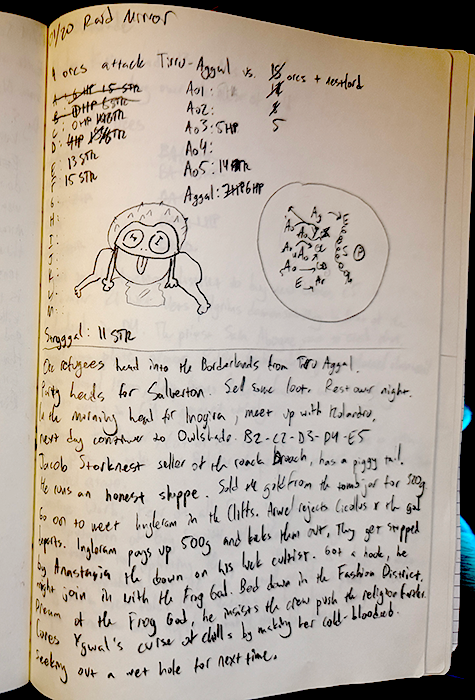 /20 Raid Mirror
orcs attack Tirru-Aggal vs. 15 orcs + Nestlord
A: 6HP 15 STR
B: 10HP 6 STR
C: 0HP STR
D: 4HP STR
E: 13 STR
F: 15 STR
G:
H:
I:
J:
K:
L:
M:
N:
Ao1:
Ao2:
Ao3: 5HP
Ao4:
Ao5: 14 STR
Aggal: 6HP
5
Struggal: 11 STR
Orc refugees head into the Borderlands from Tirru Aggal.
Party heads for Salverton. Sell some loot. Rest over night.
In the morning head for Inogira, meet up with Rolandro,
next day continue to Owlshade. B2-C2-D3-D4-E5
Jacob Storknest seller of the roach Brooch, has a piggy tail.
He runs an honest shoppe. Sold the gold from the tomb jar for 500g
Go on to meet Ingleram in the Cliffs. Arwel rejects & the gal
departs. Ingleram pays up 500g and kicks them out, They get stopped
by Anastasia the down on his luck cultist. Got a hook, he
might join in with the Frog God. Bed down in the Fashion District.
Dream of the Frog God, he insists the crew push the religion further.
Cures Ygwal's curse of chills by making her cold-blooded.
Seeking out a wet hole for next time.